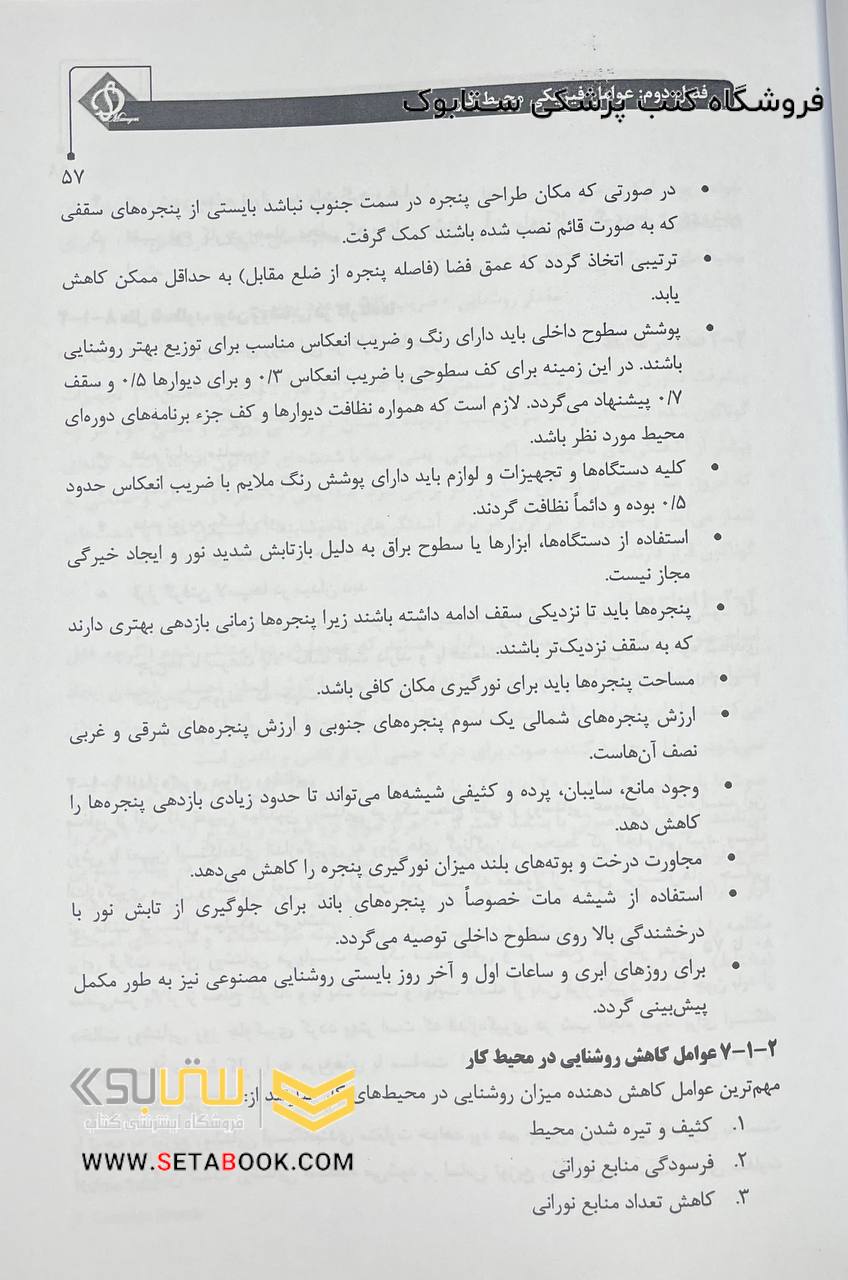 فروشگاه کتب پزشکی ستابوک
فصل دوم: عوامل فیزیکی محیط کار
۵۷
• در صورتی که مکان طراحی پنجره در سمت جنوب نباشد بایستی از پنجره‌های سقفی
که به صورت قائم نصب شده باشند کمک گرفت.
• ترتیبی اتخاذ گردد که عمق فضا (فاصله پنجره از ضلع مقابل) به حداقل ممکن کاهش
یابد.
• پوشش سطوح داخلی باید دارای رنگ و ضریب انعکاس مناسب برای توزیع بهتر روشنایی
باشند. در این زمینه برای کف سطوحی با ضریب انعکاس ۰/۳ و برای دیوارها ۰/۵ و سقف
۰/۷ پیشنهاد می‌گردد. لازم است که همواره نظافت دیوارها و کف جزء برنامه‌های دوره‌ای
محیط مورد نظر باشد.
• کلیه دستگاه‌ها و تجهیزات و لوازم باید دارای پوشش رنگ ملایم با ضریب انعکاس حدود
۰/۵ بوده و دائماً نظافت گردند.
• استفاده از دستگاه‌ها، ابزارها یا سطوح براق به دلیل بازتابش شدید نور و ایجاد خیرگی
مجاز نیست.
• پنجره‌ها باید تا نزدیکی سقف ادامه داشته باشند زیرا پنجره‌ها زمانی بازدهی بهتری دارند
که به سقف نزدیک‌تر باشند.
• مساحت پنجره‌ها باید برای نورگیری مکان کافی باشد.
• ارزش پنجره‌های شمالی یک سوم پنجره‌های جنوبی و ارزش پنجره‌های شرقی و غربی
نصف آن‌هاست.
• وجود مانع، سایبان، پرده و کثیفی شیشه‌ها می‌تواند تا حدود زیادی بازدهی پنجره‌ها را
کاهش دهد.
• مجاورت درخت و بوته‌های بلند میزان نورگیری پنجره را کاهش می‌دهد.
• استفاده از شیشه مات خصوصاً در پنجره‌های باند برای جلوگیری از تابش نور با
درخشندگی بالا روی سطوح داخلی توصیه می‌گردد.
• برای روزهای ابری و ساعات اول و آخر روز بایستی روشنایی مصنوعی نیز به طور مکمل
پیش‌بینی گردد.
۲-۱-۷ عوامل کاهش روشنایی در محیط کار
مهم‌ترین عوامل کاهش دهنده میزان روشنایی در محیط‌های کار عبارتند از:
۱. کثیف و تیره شدن محیط
۲. فرسودگی منابع نورانی
۳. کاهش تعداد منابع نورانی
ستابوک
فروشگاه اینترنتی کتاب
WWW.SETABOOK.COM